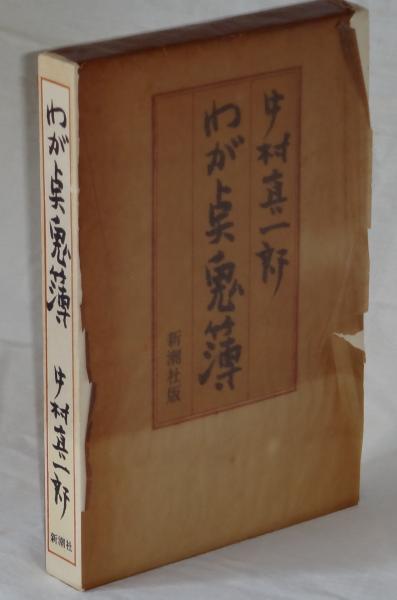 中村真一郎
わが点鬼簿
新潮社版
わが点鬼簿
中村真一郎
新潮社